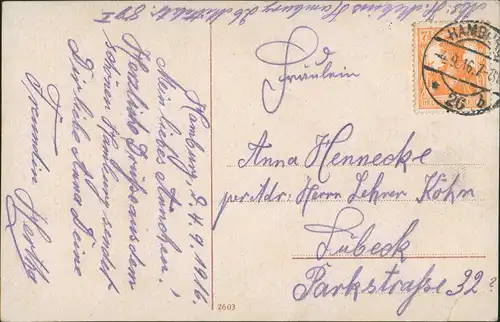 Hamburg, d. 4.9.1916.
Mein liebes Ännchen!
Herzliche Grüße aus dem
schönen Hamburg sendet
Dir liebe Anna Deine
Freundin Hertha
Fräulein
Anna Hennecke
per Adr. Herrn Lehrer Köhn
Lübeck
Parkstraße 32
Hamburg 26
HAMBU
4.9.16.7
* 26 b
7½
2603